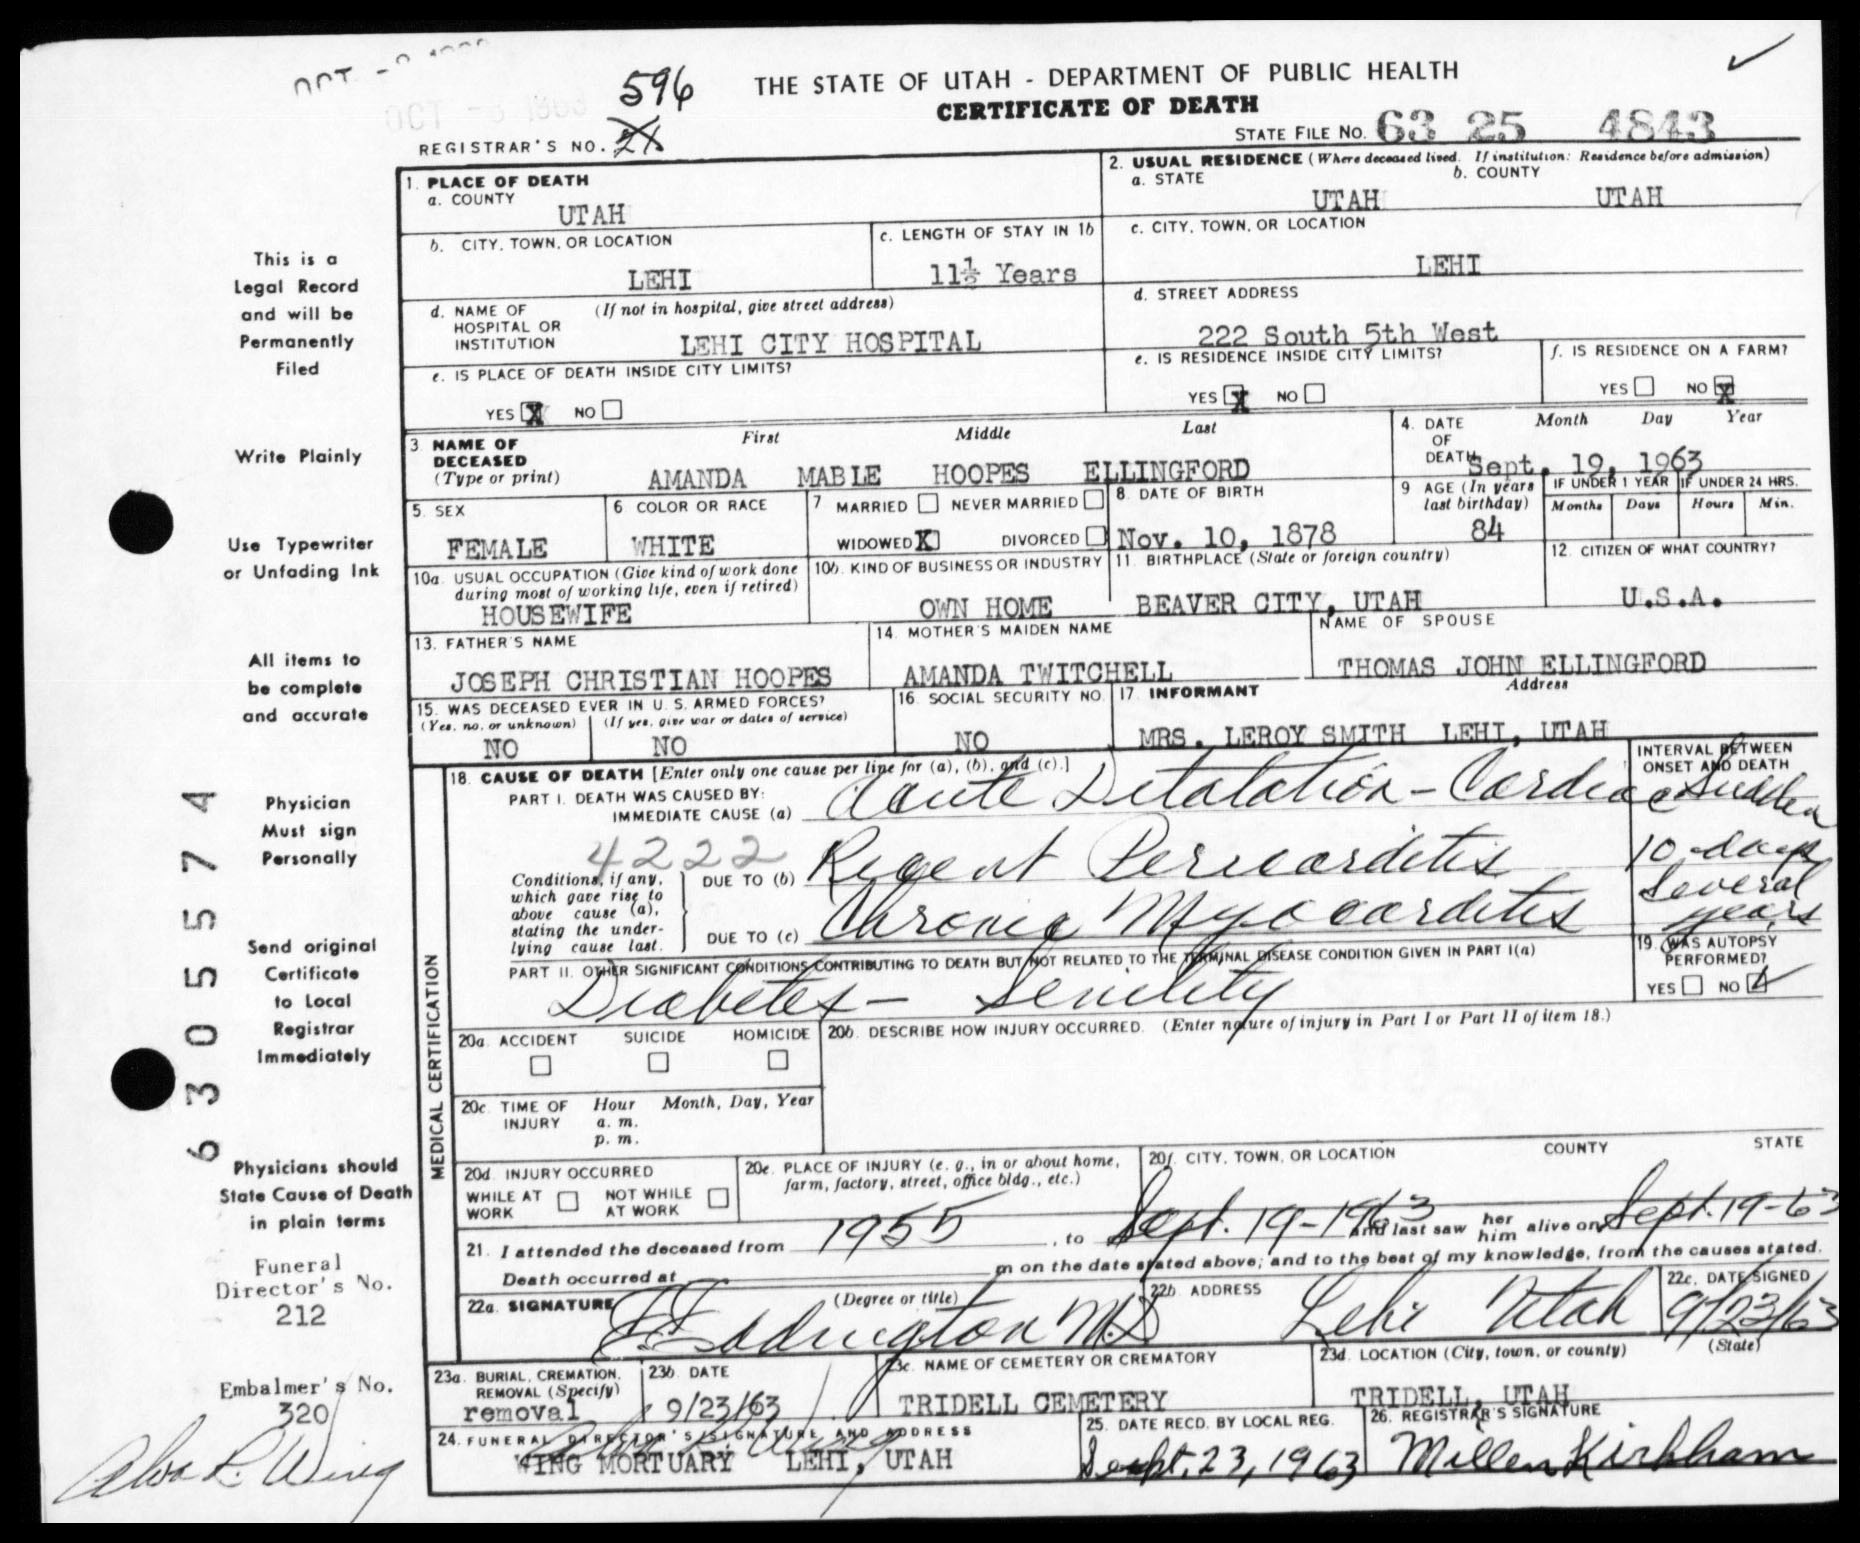 596
THE STATE OF UTAH - DEPARTMENT OF PUBLIC HEALTH
CERTIFICATE OF DEATH
REGISTRAR'S NO.
STATE FILE NO. 63 25 4843
1. PLACE OF DEATH
a. COUNTY
UTAH
2. USUAL RESIDENCE (Where deceased lived. If institution: Residence before admission)
a. STATE
b. COUNTY
UTAH UTAH
b. CITY, TOWN, OR LOCATION
LEHI
c. LENGTH OF STAY IN 1b
11½ Years
c. CITY, TOWN, OR LOCATION
LEHI
d. NAME OF HOSPITAL OR INSTITUTION
(If not in hospital, give street address)
LEHI CITY HOSPITAL
d. STREET ADDRESS
222 South 5th West
e. IS PLACE OF DEATH INSIDE CITY LIMITS?
YES X NO
e. IS RESIDENCE INSIDE CITY LIMITS?
YES X NO
f. IS RESIDENCE ON A FARM?
YES NO X
3. NAME OF DECEASED
(Type or print)
First Middle Last
AMANDA MABLE HOOPES ELLINGFORD
4. DATE OF DEATH
Month Day Year
Sept. 19, 1963
5. SEX
FEMALE
6 COLOR OR RACE
WHITE
7 MARRIED NEVER MARRIED
WIDOWED X DIVORCED
8. DATE OF BIRTH
Nov. 10, 1878
9 AGE (In years last birthday)
84
IF UNDER 1 YEAR
Months Days
IF UNDER 24 HRS.
Hours Min.
10a. USUAL OCCUPATION (Give kind of work done
during most of working life, even if retired)
HOUSEWIFE
10b. KIND OF BUSINESS OR INDUSTRY
OWN HOME
11. BIRTHPLACE (State or foreign country)
BEAVER CITY, UTAH
12. CITIZEN OF WHAT COUNTRY?
U.S.A.
13. FATHER'S NAME
JOSEPH CHRISTIAN HOOPES
14. MOTHER'S MAIDEN NAME
AMANDA TWITCHELL
NAME OF SPOUSE
THOMAS JOHN ELLINGFORD
15. WAS DECEASED EVER IN U. S. ARMED FORCES?
(Yes, no, or unknown) (If yes, give war or dates of service)
NO NO
16. SOCIAL SECURITY NO.
NO
17. INFORMANT Address
MRS. LEROY SMITH LEHI, UTAH
MEDICAL CERTIFICATION
18. CAUSE OF DEATH [Enter only one cause per line for (a), (b), and (c).]
PART I. DEATH WAS CAUSED BY:
IMMEDIATE CAUSE (a) Acute Dilatation - Cardiac
INTERVAL BETWEEN
ONSET AND DEATH
Sudden
4222
Conditions, if any,
which gave rise to
above cause (a),
stating the under-
lying cause last.
DUE TO (b) Recent Pericarditis
10 days
DUE TO (c) Chronic Myocarditis
Several years
PART II. OTHER SIGNIFICANT CONDITIONS CONTRIBUTING TO DEATH BUT NOT RELATED TO THE TERMINAL DISEASE CONDITION GIVEN IN PART I(a)
Diabetes - Senility
19. WAS AUTOPSY PERFORMED?
YES NO
20a. ACCIDENT SUICIDE HOMICIDE
20b. DESCRIBE HOW INJURY OCCURRED. (Enter nature of injury in Part I or Part II of item 18.)
20c. TIME OF INJURY
Hour Month, Day, Year
a. m.
p. m.
20d. INJURY OCCURRED
WHILE AT WORK NOT WHILE AT WORK
20e. PLACE OF INJURY (e. g., in or about home,
farm, factory, street, office bldg., etc.)
20f. CITY, TOWN, OR LOCATION COUNTY STATE
21. I attended the deceased from 1955, to Sept. 19-1963 and last saw her him alive on Sept. 19-63
Death occurred at m on the date stated above; and to the best of my knowledge, from the causes stated.
22a. SIGNATURE (Degree or title)
Eddington M.D
22b. ADDRESS
Lehi Utah
22c. DATE SIGNED
9/23/63
23a. BURIAL, CREMATION,
REMOVAL (Specify)
removal
23b. DATE
9/23/63
23c. NAME OF CEMETERY OR CREMATORY
TRIDELL CEMETERY
23d. LOCATION (City, town, or county) (State)
TRIDELL, UTAH
24. FUNERAL DIRECTOR'S SIGNATURE AND ADDRESS
WING MORTUARY LEHI, UTAH
25. DATE RECD. BY LOCAL REG.
Sept. 23, 1963
26. REGISTRAR'S SIGNATURE
Millen Kirkham
This is a
Legal Record
and will be
Permanently
Filed
Write Plainly
Use Typewriter
or Unfading Ink
All items to
be complete
and accurate
Physician
Must sign
Personally
Send original
Certificate
to Local
Registrar
Immediately
Physicians should
State Cause of Death
in plain terms
Funeral
Director's No.
212
Embalmer's No.
320
Alva R. Wing
63055574